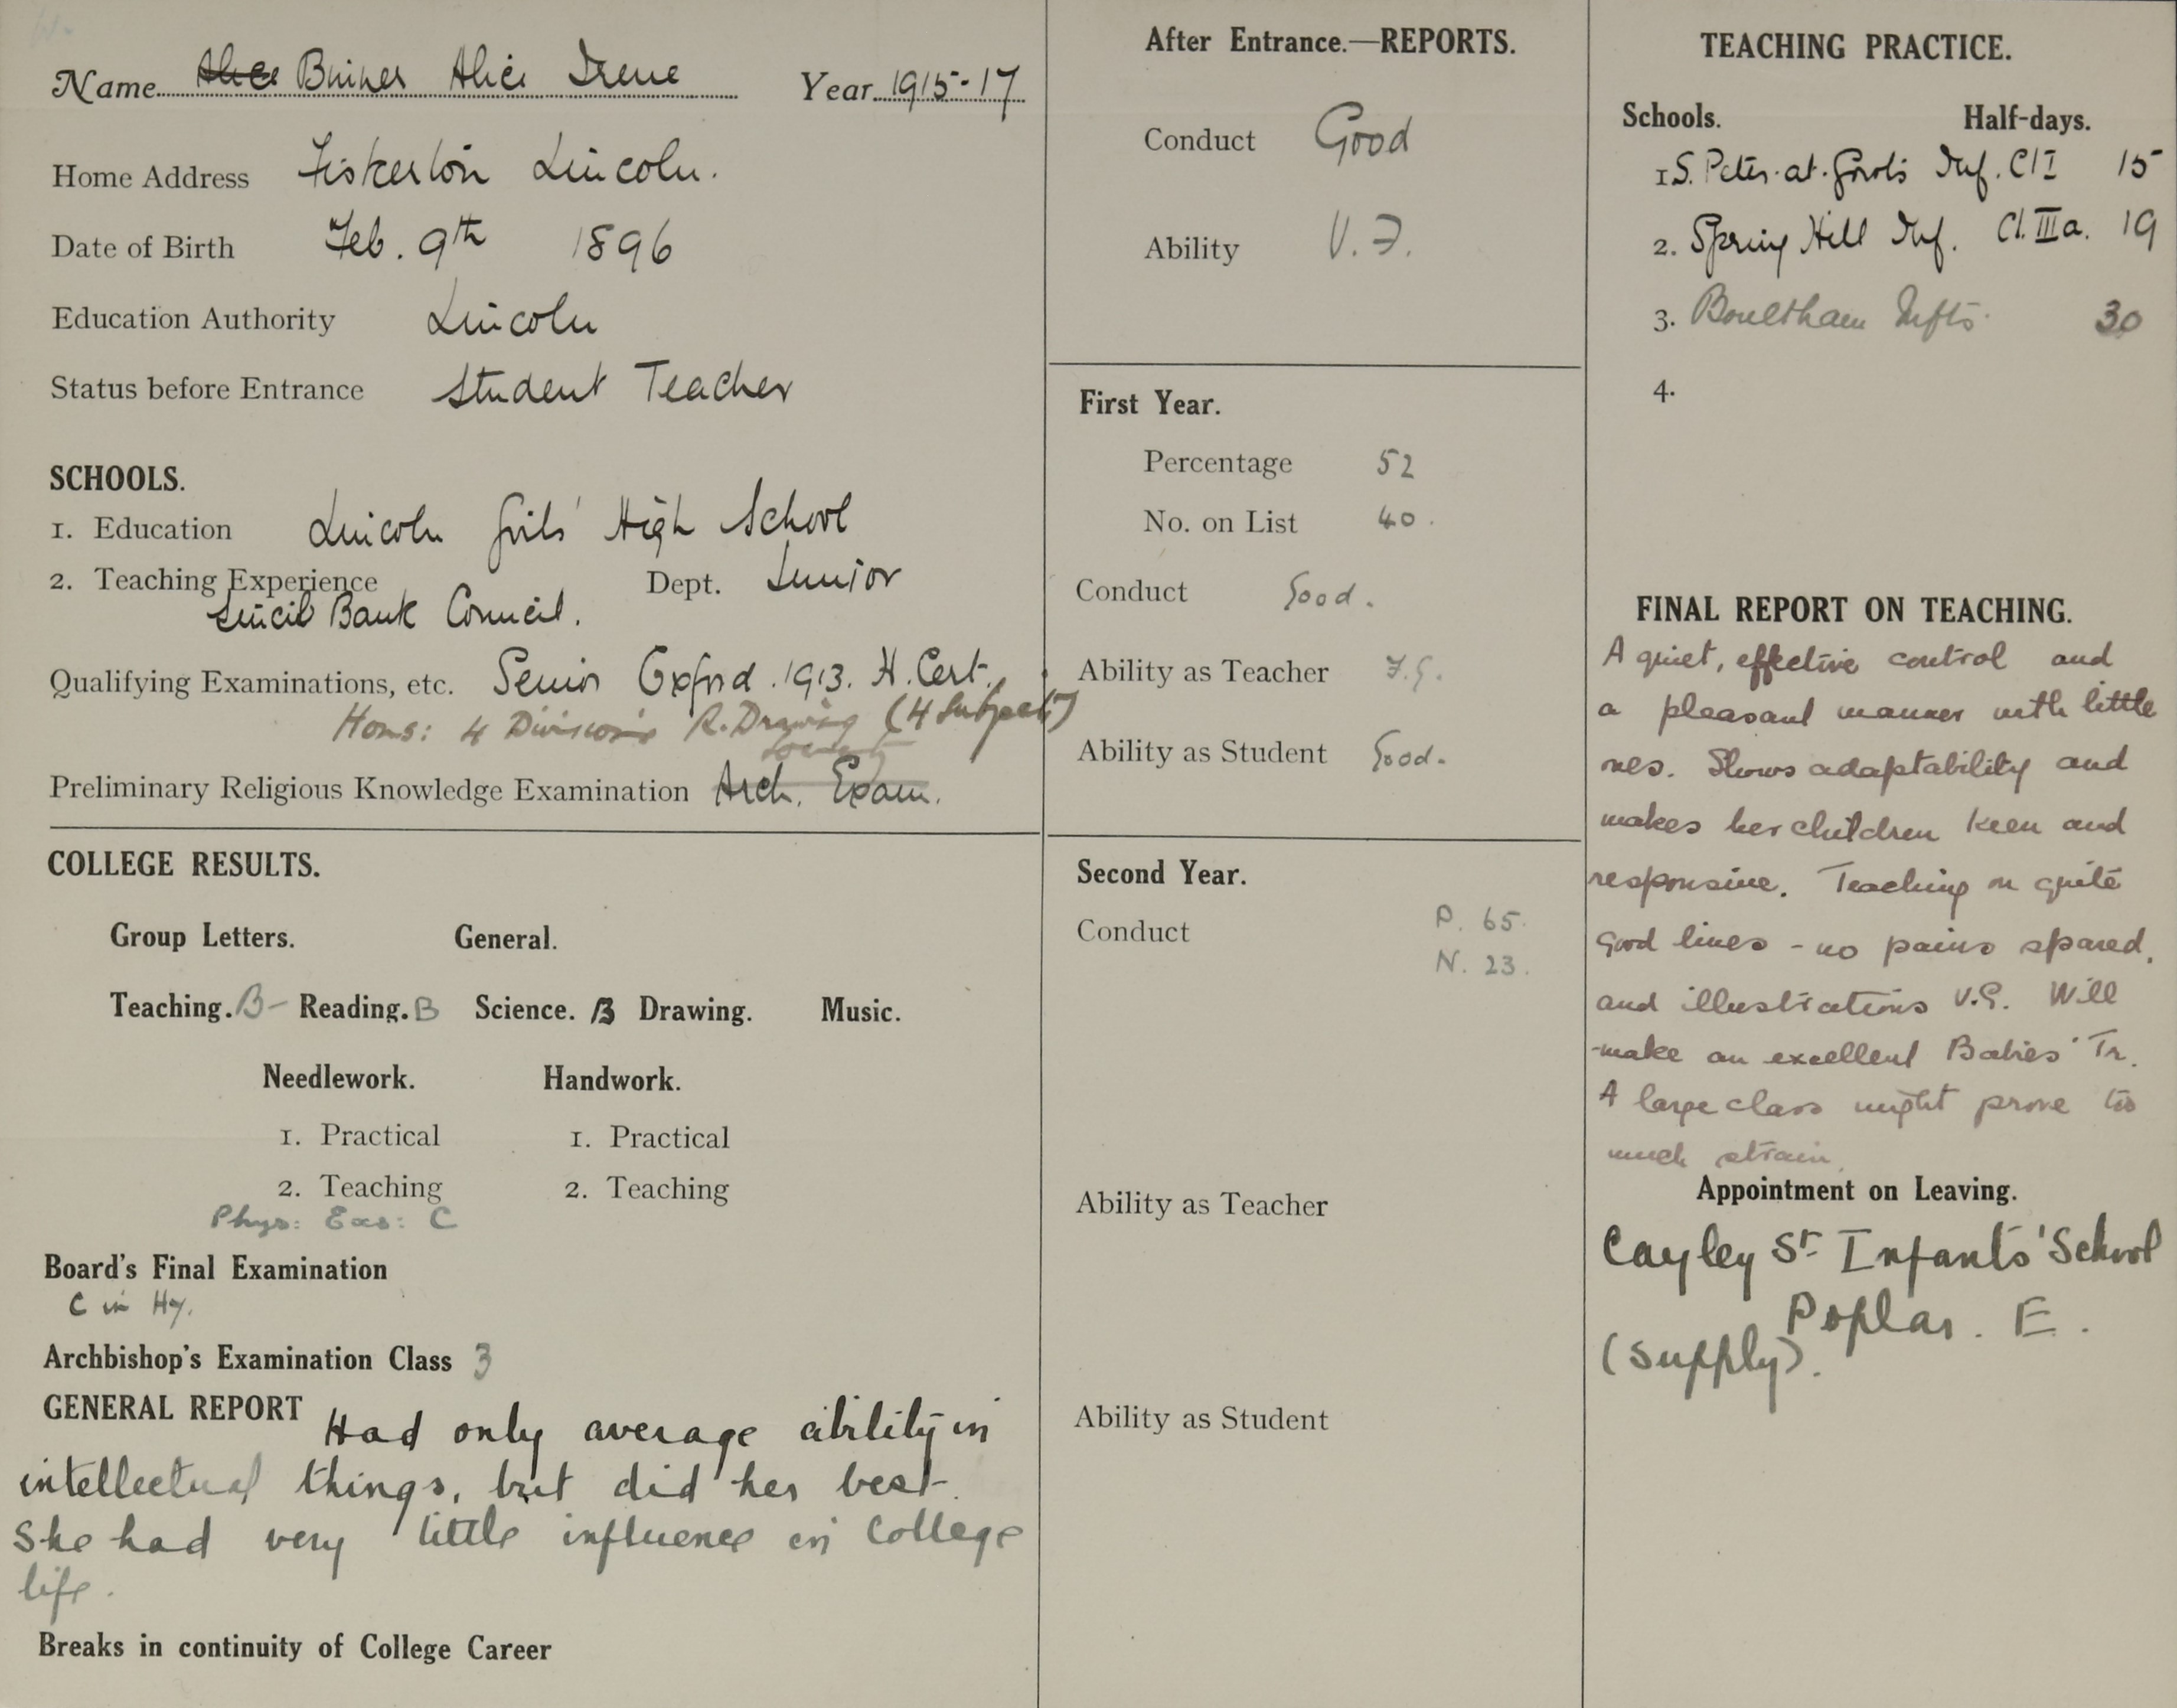 Name Alice Briner Alice Irene Year 1915-17
Home Address Fiskerton Lincoln.
Date of Birth Feb. 9th 1896
Education Authority Lincoln
Status before Entrance Student Teacher
SCHOOLS.
1. Education Lincoln Girls' High School
2. Teaching Experience Dept. Junior
Sincil Bank Council.
Qualifying Examinations, etc. Senior Oxford. 1913. H. Cert.
Hons: 4 Divisions R. Drawing (4 Subjects)
Preliminary Religious Knowledge Examination Arch. Exam.
COLLEGE RESULTS.
Group Letters. General.
Teaching. B- Reading. B Science. B Drawing. Music.
Needlework. Handwork.
1. Practical 1. Practical
2. Teaching 2. Teaching
Phys: Exs: C
Board's Final Examination
C in Hy.
Archbishop's Examination Class 3
GENERAL REPORT Had only average ability in
intellectual things, but did her best.
She had very little influence in College
life.
Breaks in continuity of College Career
After Entrance.—REPORTS.
Conduct Good
Ability V.F.
First Year.
Percentage 52
No. on List 40.
Conduct Good.
Ability as Teacher F.G.
Ability as Student Good.
Second Year.
Conduct P. 65.
N. 23.
Ability as Teacher
Ability as Student
TEACHING PRACTICE.
Schools. Half-days.
1 S. Peter-at-Gowts Inf. Cl I 15
2. Spring Hill Inf. Cl. IIIa. 19
3. Boultham Infts. 30
4.
FINAL REPORT ON TEACHING.
A quiet, effective control and
a pleasant manner with little
ones. Shows adaptability and
makes her children keen and
responsive. Teaching on quite
good lines - no pains spared,
and illustrations V.G. Will
make an excellent Babies' Tr.
A large class might prove too
much strain.
Appointment on Leaving.
Cayley St. Infants' School
Poplar. E.
(Supply).